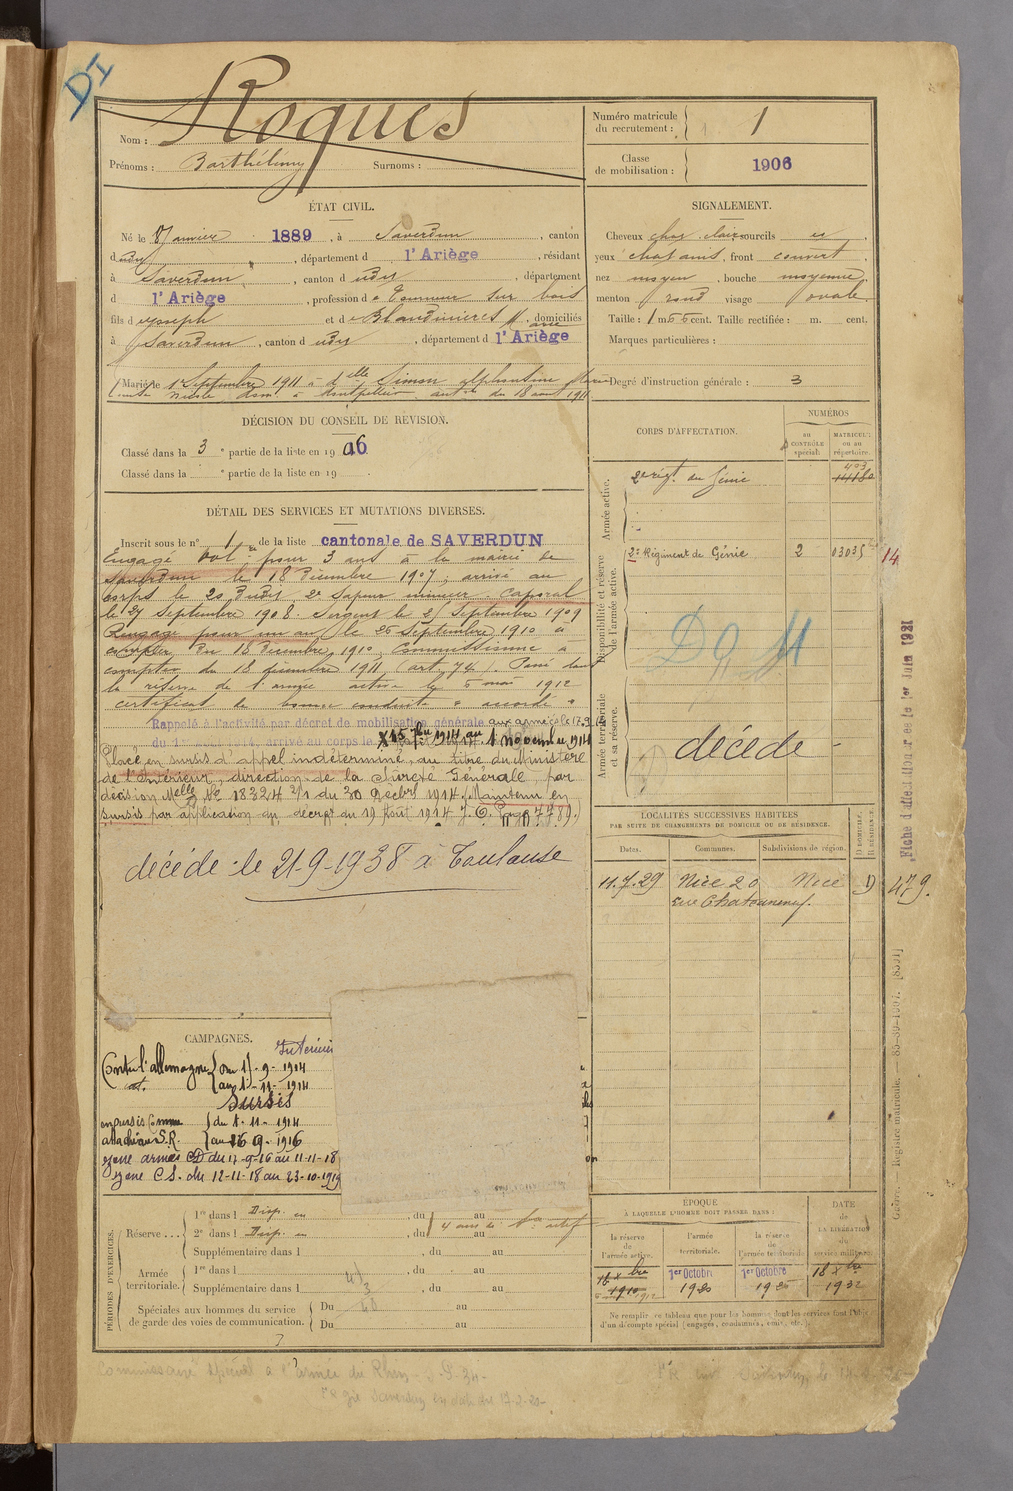 DI
Nom : Roques
Prénoms : Barthélemy Surnoms :
Numéro matricule du recrutement : 1
Classe de mobilisation : 1906
ÉTAT CIVIL.
Né le Janvier 1889, à Saverdun, canton
dudit, département d l'Ariège, résidant
à Saverdun, canton dudit, département
d l'Ariège, profession de tourneur sur bois
fils de Joseph et de Blaudinieres Marie, domiciliés
à Saverdun, canton dudit, département d l'Ariège
Marié le 1er Septembre 1911 à delle Simon Alphonsine
à Montpellier aut. du 18 août 1911
SIGNALEMENT.
Cheveux chat. clair, sourcils id,
yeux chatains, front couvert,
nez moyen, bouche moyenne,
menton rond visage ovale.
Taille : 1 m. 55 cent. Taille rectifiée : m. cent.
Marques particulières :
Degré d'instruction générale : 3
DÉCISION DU CONSEIL DE RÉVISION.
Classé dans la 3e partie de la liste en 1906.
Classé dans la e partie de la liste en 19 .
DÉTAIL DES SERVICES ET MUTATIONS DIVERSES.
Inscrit sous le n° 1 de la liste cantonale de SAVERDUN
Engagé volre pour 3 ans à la mairie de
Saverdun le 18 Décembre 1907, arrivé au
corps le 20 dudit 2e Sapeur mineur. Caporal
le 27 Septembre 1908. Sergent le 25 Septembre 1909
Rengagé pour un an le 26 Septembre 1910 à
compter du 18 Décembre 1910, Commissionné à
compter du 18 décembre 1911 (art. 74). Passé dans
la réserve de l'armée active le 5 mai 1912
certificat de bonne conduite "accordé"
Rappelé à l'activité par décret de mobilisation générale aux armées le 17.9.16
du 1er 1914, arrivé au corps le X 15 7bre 1914 au 1 novembre 1914
Placé en sursis d'appel indéterminé, au titre du Ministère
de l'Intérieur, direction de la Sûreté Générale, par
décision Melle No 18324 2/1 du 30 Decbre 1914. Maintenu en
sursis par application du décret du 19 Août 1914 J.O. Page 7489.
décédé le 21-9-1938 à Toulouse
CORPS D'AFFECTATION.
NUMÉROS
au CONTRÔLE spécial.
MATRICULE ou au répertoire.
Armée active.
2e régt. du Génie 403
Disponibilité et réserve de l'armée active.
2e Régiment de Génie 2 03035 14
Armée territoriale et sa réserve.
décédé -
LOCALITÉS SUCCESSIVES HABITÉES
PAR SUITE DE CHANGEMENTS DE DOMICILE OU DE RÉSIDENCE.
Dates. Communes. Subdivisions de région. D DOMICILE. R RÉSIDENCE.
11.7.29 Nice 20 Nice D 479.
rue Chateauneuf.
Fiche d'affect. 1er Juin 1921
Registre matricule. — 85-39-1907. [8531]
CAMPAGNES.
Intérieur
Contre l'allemagne du 15-9-1914
au 1-11-1914
Sursis
du 1-11-1914
attaché au S.R. au 16 9-1916
zone armées CD du 17-9-16 au 11-11-18
zone CS. du 12-11-18 au 23-10-1919
PÉRIODES D'EXERCICES.
Réserve ... 1re dans l Disp. en , du au
2e dans l Disp. en , du au
Supplémentaire dans l , du au
Armée territoriale. 1re dans l , du au
Supplémentaire dans l , du au
Spéciales aux hommes du service de garde des voies de communication. Du au
Du au
ÉPOQUE
À LAQUELLE L'HOMME DOIT PASSER DANS :
la réserve de l'armée active.
l'armée territoriale.
la réserve de l'armée territoriale
DATE de LA LIBÉRATION du service militaire.
18 Xbre 1910 1er Octobre 1920 1er Octobre 18 Xbre 1932
Ne remplir ce tableau que pour les hommes dont les services font l'objet
d'un décompte spécial (engagés, condamnés, omis, etc.).
Commissaire spécial à l'Armée du Rhin - S.P. 34 -
Saverdun en date du 17-2-20-